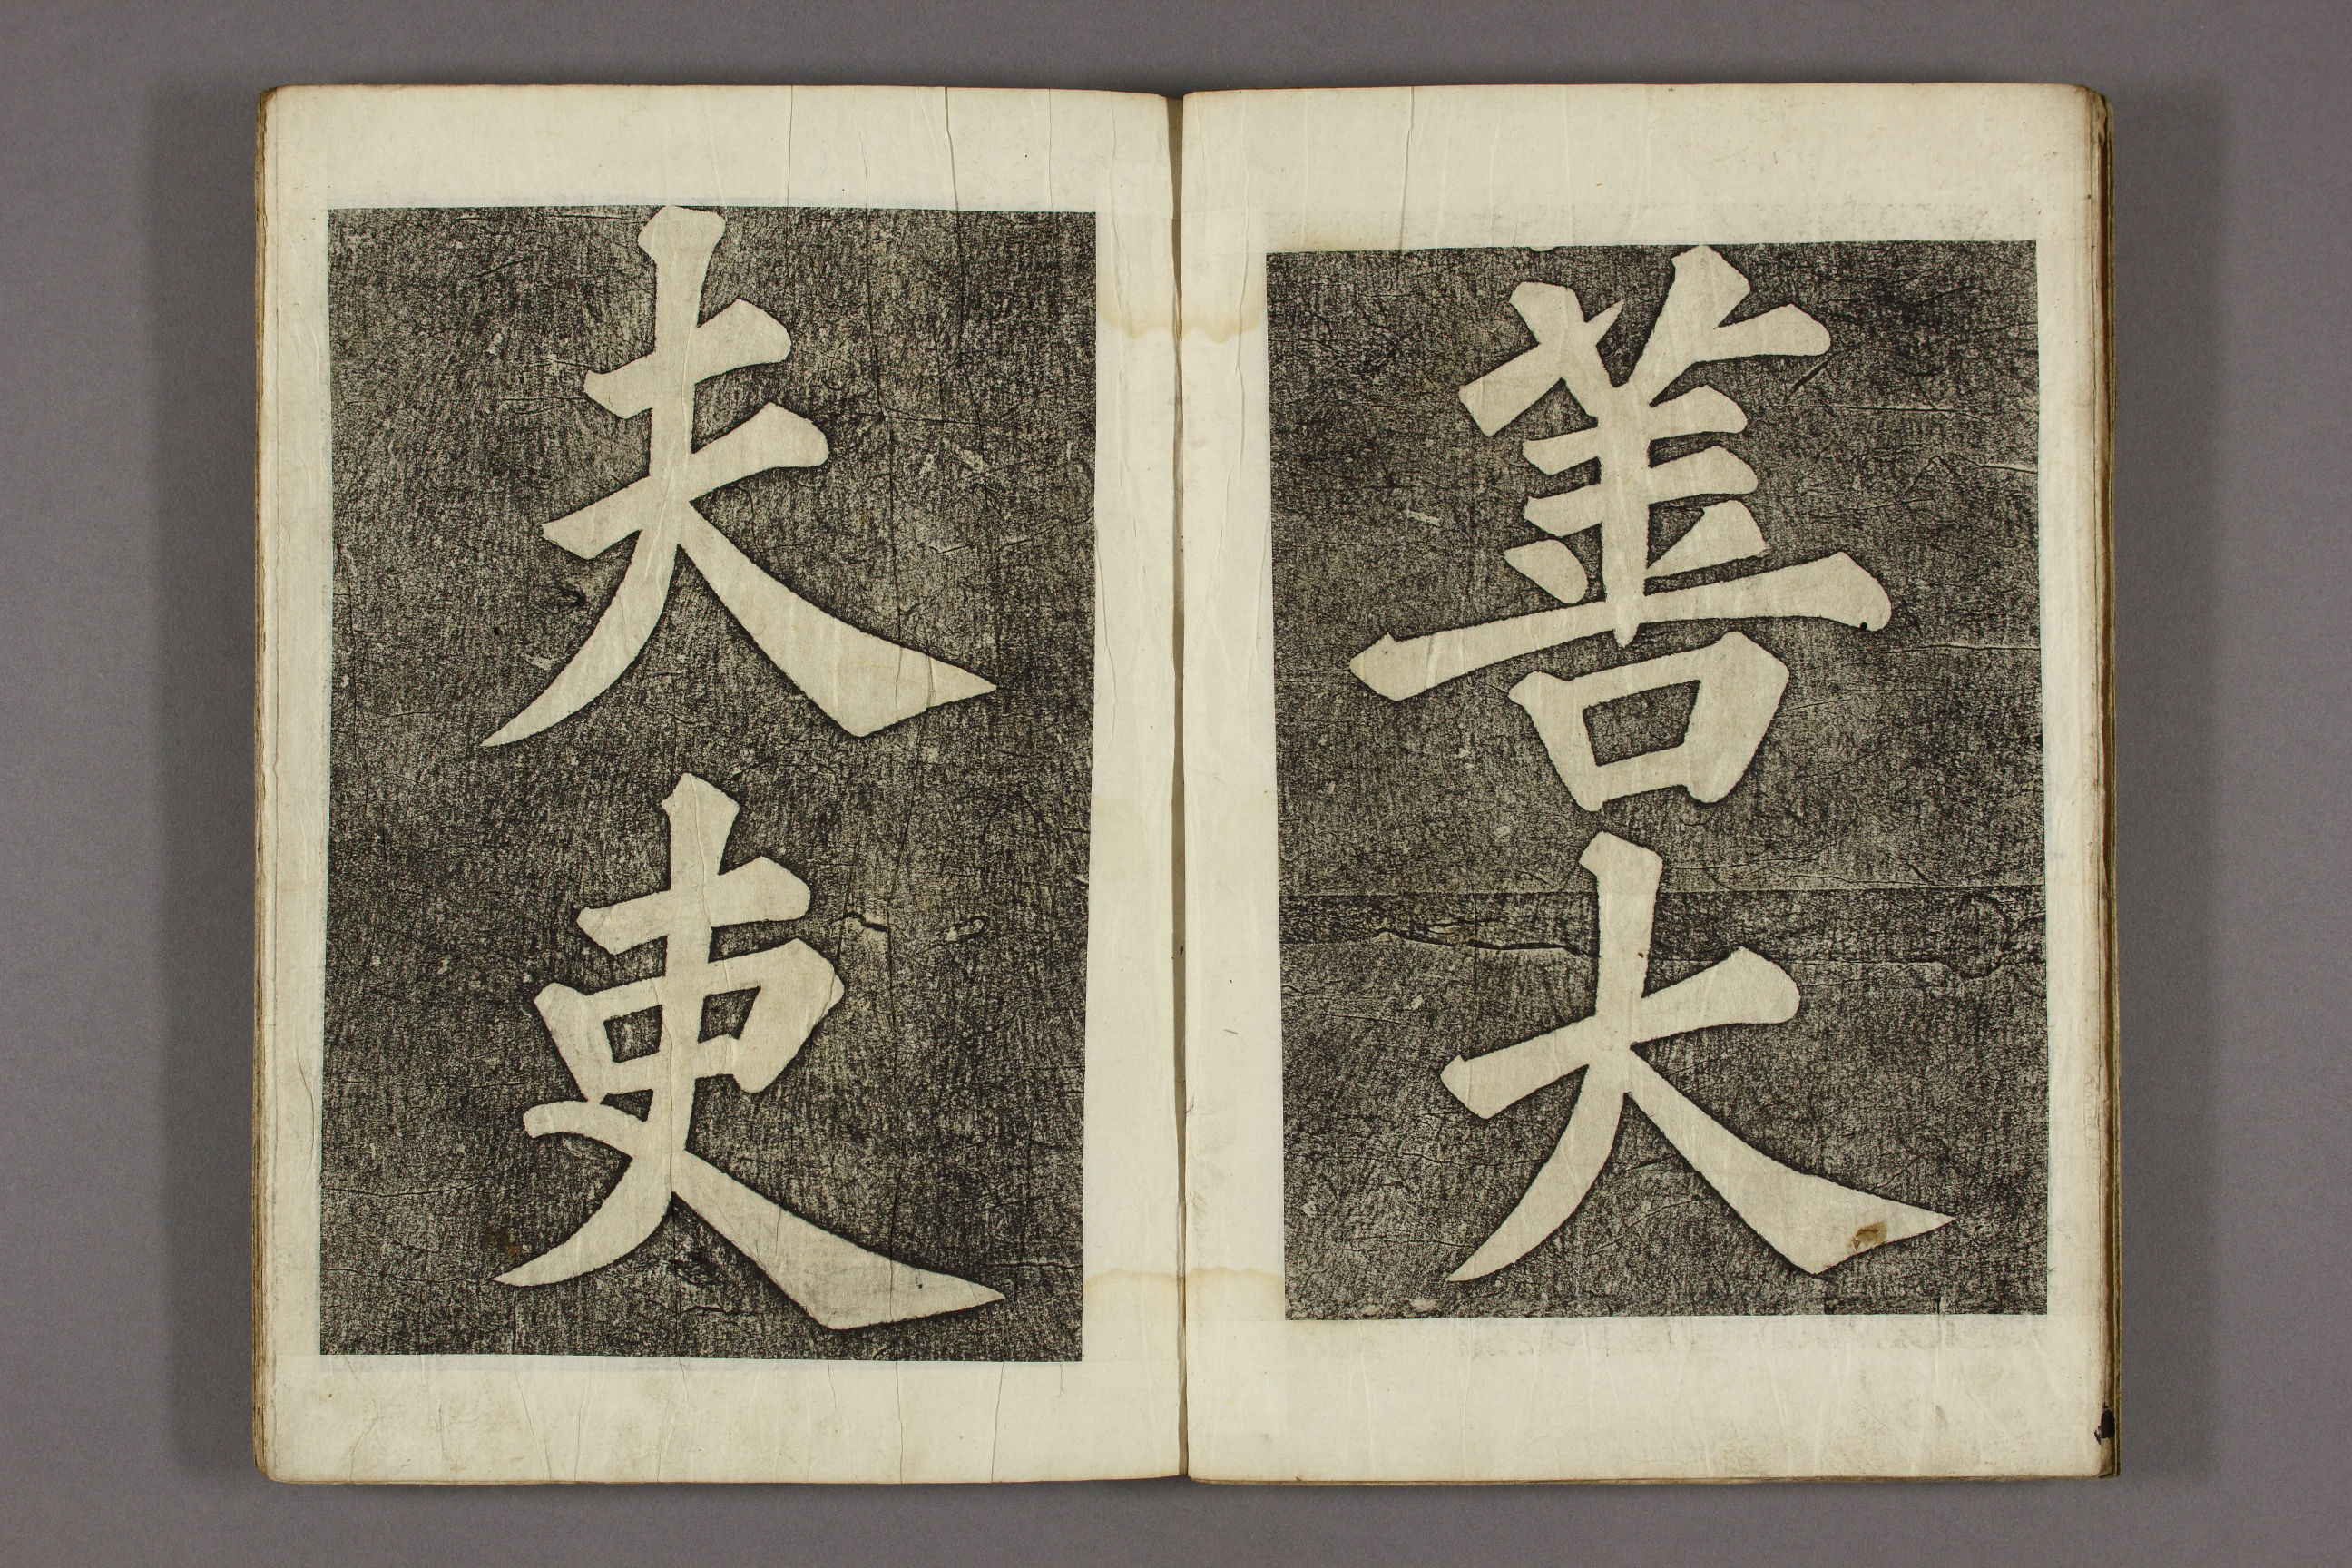 善大
夫吏